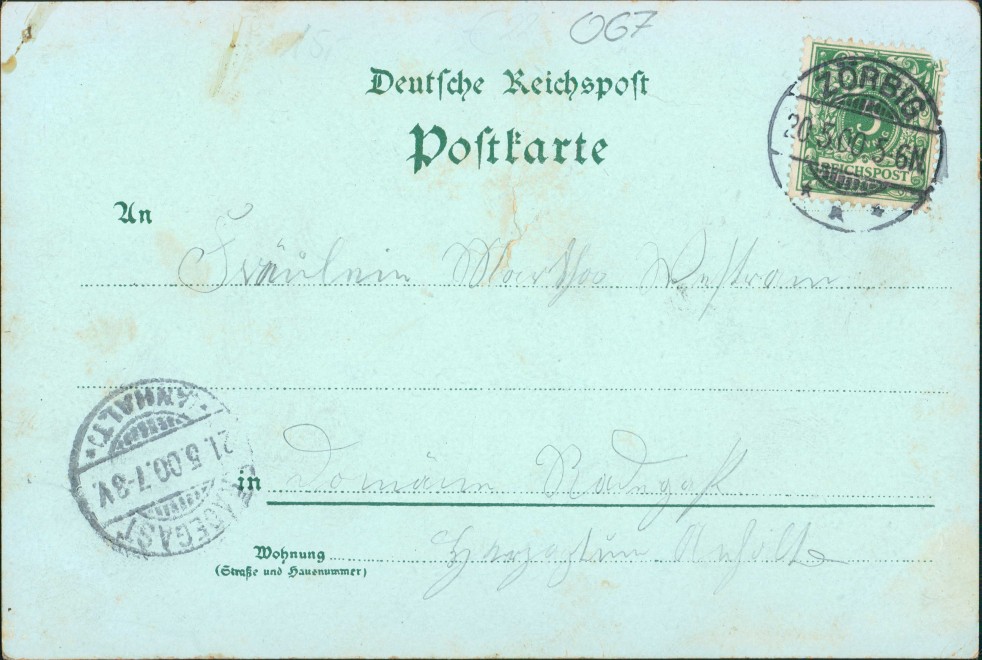 067
Deutsche Reichspost
Postkarte
ZÖRBIG
20.5.00.5-6N
5
REICHSPOST
An
Fräulein Martha
(ANHALT)
21.5.00.7-8V.
RADEGAST
in Domäne Radegast
Wohnung Herzogtum Anhalt
(Straße und Hausnummer)